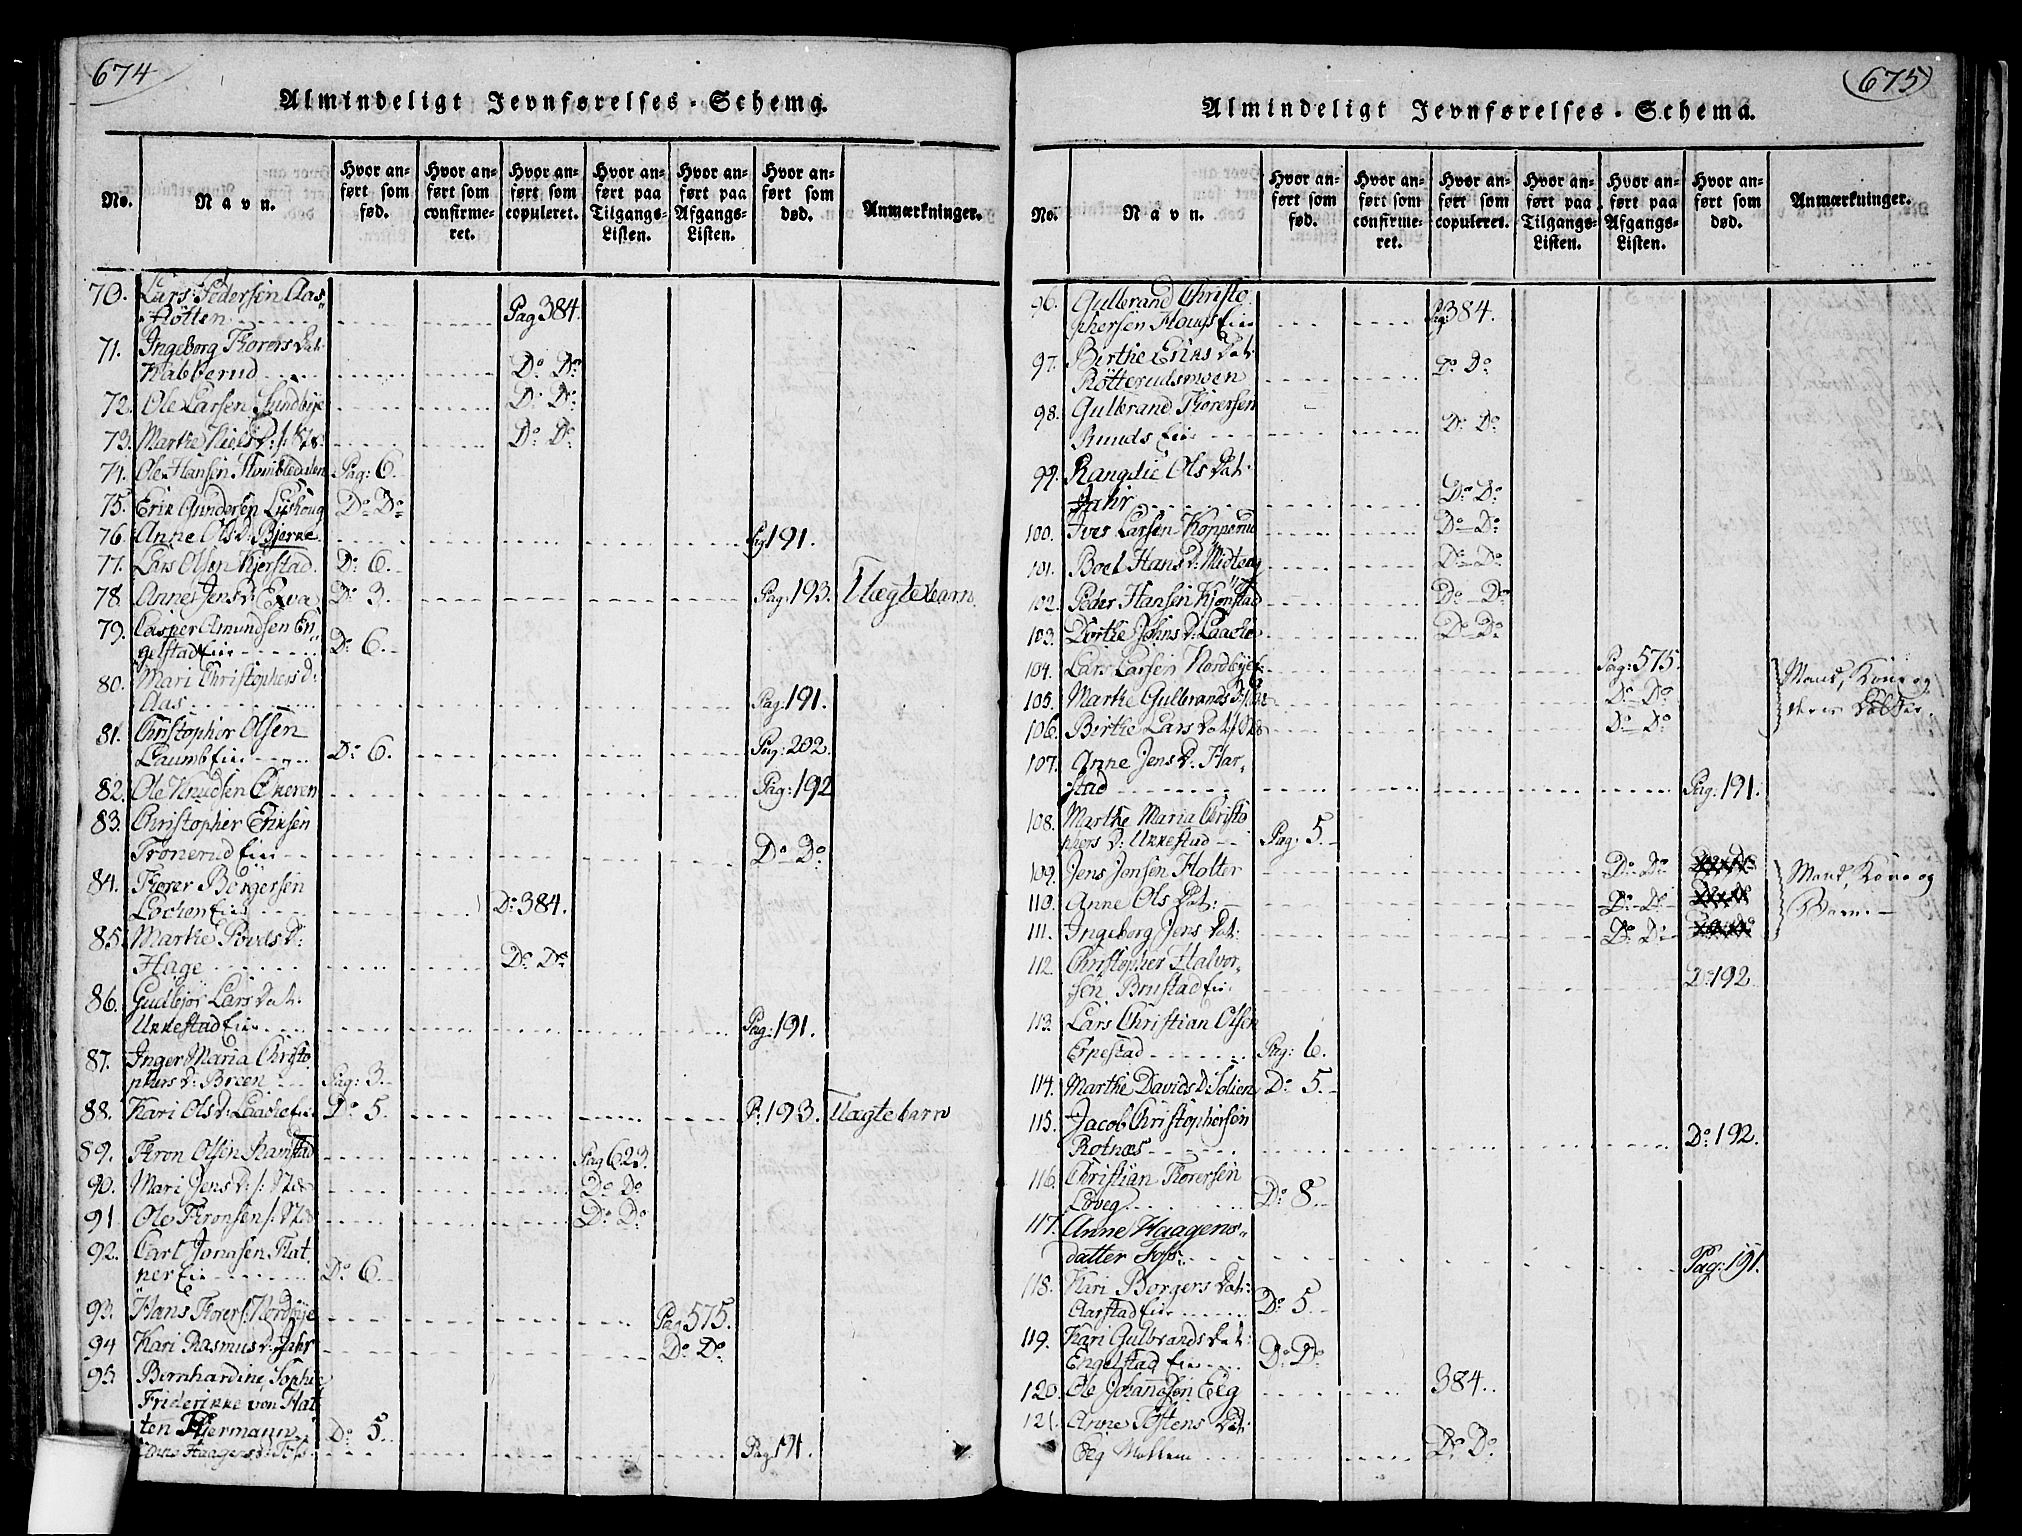 674
Almindeligt Jevnførelses-Schema.
No.
Navn.
Hvor anført som fød.
Hvor anført som confirmeret.
Hvor anført som copuleret.
Hvor anført paa Tilgangs-Listen.
Hvor anført paa Afgangs-Listen.
Hvor anført som død.
Anmærkninger.
70. Lars Pedersen Aas-
Røtten Pag 384.
71. Ingeborg Thorers Dat:
Habberud Do Do
72. Ole Larsen Sundbye Do Do
73. Marthe Niels D: Do Do
74. Ole Hansen Pag: 6.
75. Erik Andersen Do Do
76. Anne Ols D: Bjerke Pag 191.
77. Lars Olsen Kjerstad. Do 6.
78. Anne Jens D: Do 3. Pag. 193. Lægtebarn
79. Casper Amundsen En
gelstad Eie Do 6.
80. Mari Christophers D:
Aas Pag. 191.
81. Christopher Olsen
Laumb Eie Do 6. Pag: 202.
82. Ole Knudsen Økeren Pag: 192
83. Christopher Eriksen
Tronerud Eie Do Do
84. Thorer Börgersen
Locken Eie Do 384.
85. Marthe Povels D:
Hage Do Do
86. Gudbjör Lars Dat:
Ukkestad Eie Pag: 191.
87. Inger Maria Christo
phers D: Breen Pag: 3.
88. Kari Ols D: Laache Eie Do 5. P: 193. Lægtebarn
89. Thron Olsen Ramstad Pag 623.
90. Mari Jens D: Do Do
91 Ole Thronsen Do Do
92. Carl Jonasen Flat
ner Eie Do 6.
93. Hans Thorers: Nordbye Pag 575.
94 Kari Rasmus D: Jahr Do Do
95 Bernhardine Sophie
Friderikke von Hat
ten Do 5.
Anne Haagens D: Foss Pag 191.
675
Almindeligt Jevnførelses-Schema.
No.
Navn.
Hvor anført som fød.
Hvor anført som confirmeret.
Hvor anført som copuleret.
Hvor anført paa Tilgangs-Listen.
Hvor anført paa Afgangs-Listen.
Hvor anført som død.
Anmærkninger.
96. Gulbrand Christo
phersen Haugs Eie Pag: 384.
97. Berthe Eriks Dat:
Røtterudsmoen Do Do
98. Gulbrand Thorersen
Runds Eie Do Do
99. Rangdie Ols Dat:
Jahr Do Do
100. Iver Larsen Kopperud Do Do
101. Boel Hans D: Midteng Do Do
102. Peder Hansen Kjønstad Do Do
103. Dorthe Johns D: Laache Do Do
104. Lars Larsen Nordbye Pag: 575. Mand, Kone og
105. Marthe Gulbrands D: Do Do deres Datter
106. Birthe Lars Dat: Do Do
107. Anne Jens D. Har-
stad Pag. 191.
108. Marthe Maria Christo
phers D: Ukkestad Pag. 5.
109. Jens Jonsen Holter Do Do Mand, Kone og
110. Anne Ols Dat: Do Do Barn
111. Ingeborg Jens Dat: Do Do
112. Christopher Halvor-
sen Brustad Eie Do 192
113. Lars Christian Olsen
Erpestad Pag: 6.
114. Marthe Davids D: Solien Do 5.
115. Jacob Christophersen
Rotnæs Do 192.
116. Christian Thorersen
Löveg Do 8.
117. Anne Haagens-
datter Foss Pag: 191.
118. Kari Borgers Dat:
Aarstad Eie Do 5.
119. Kari Gulbrands Dat:
Engelstad Eie Do Do
120. Ole Johannsen Eeg 384.
121. Anne Tostens Dat:
Eeg Do Do